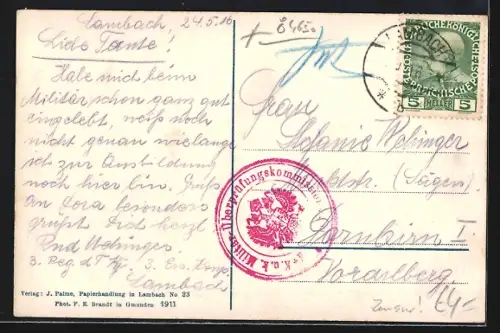 Lambach, 24.5.16
Liebe Tante!
Habe mich beim
Militär schon ganz gut
eingelebt, weiß noch
nicht genau wie lange
ich zur Ausbildung
noch hier bin. Gruß
an Dora besonders
grüßt Dich herzl.
Wehinger
3. Ers. Komp.
Lambach
Verlag: J. Palme, Papierhandlung in Lambach No 23
Phot. F. E. Brandt in Gmunden 1911
Frau
Stefanie Wehinger
(Sägen)
Dornbirn I
Vorarlberg
Zensur!
K. u. k. Militär-Überprüfungskommission
LAMBACH
5 HELLER 5